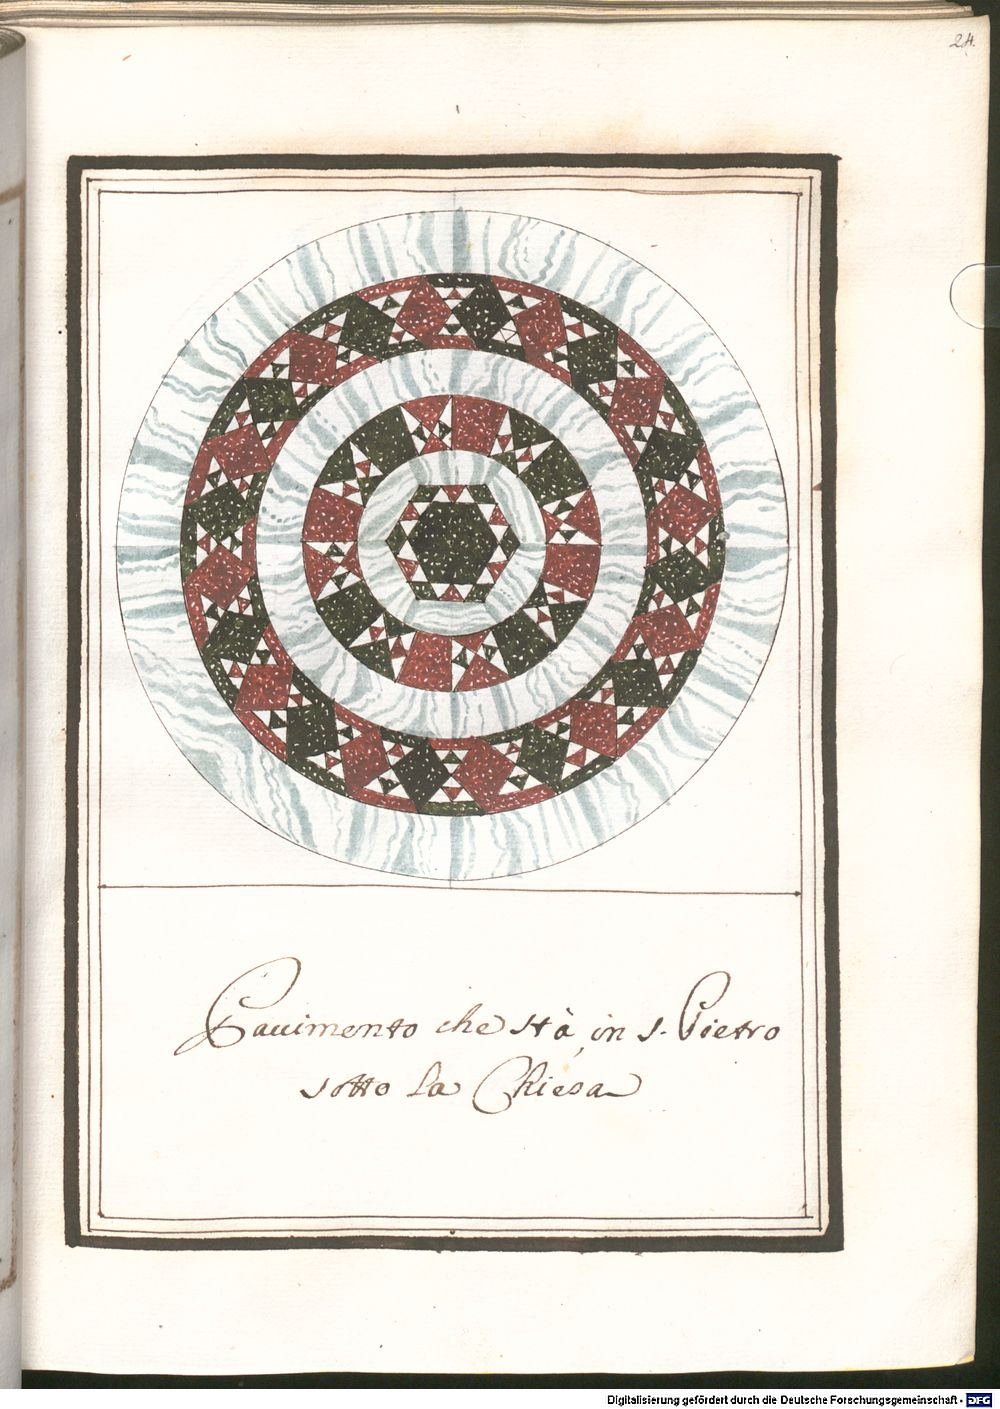 24.
Pauimento che stà in s. Pietro
sotto la Chiesa
Digitalisierung gefördert durch die Deutsche Forschungsgemeinschaft - DFG